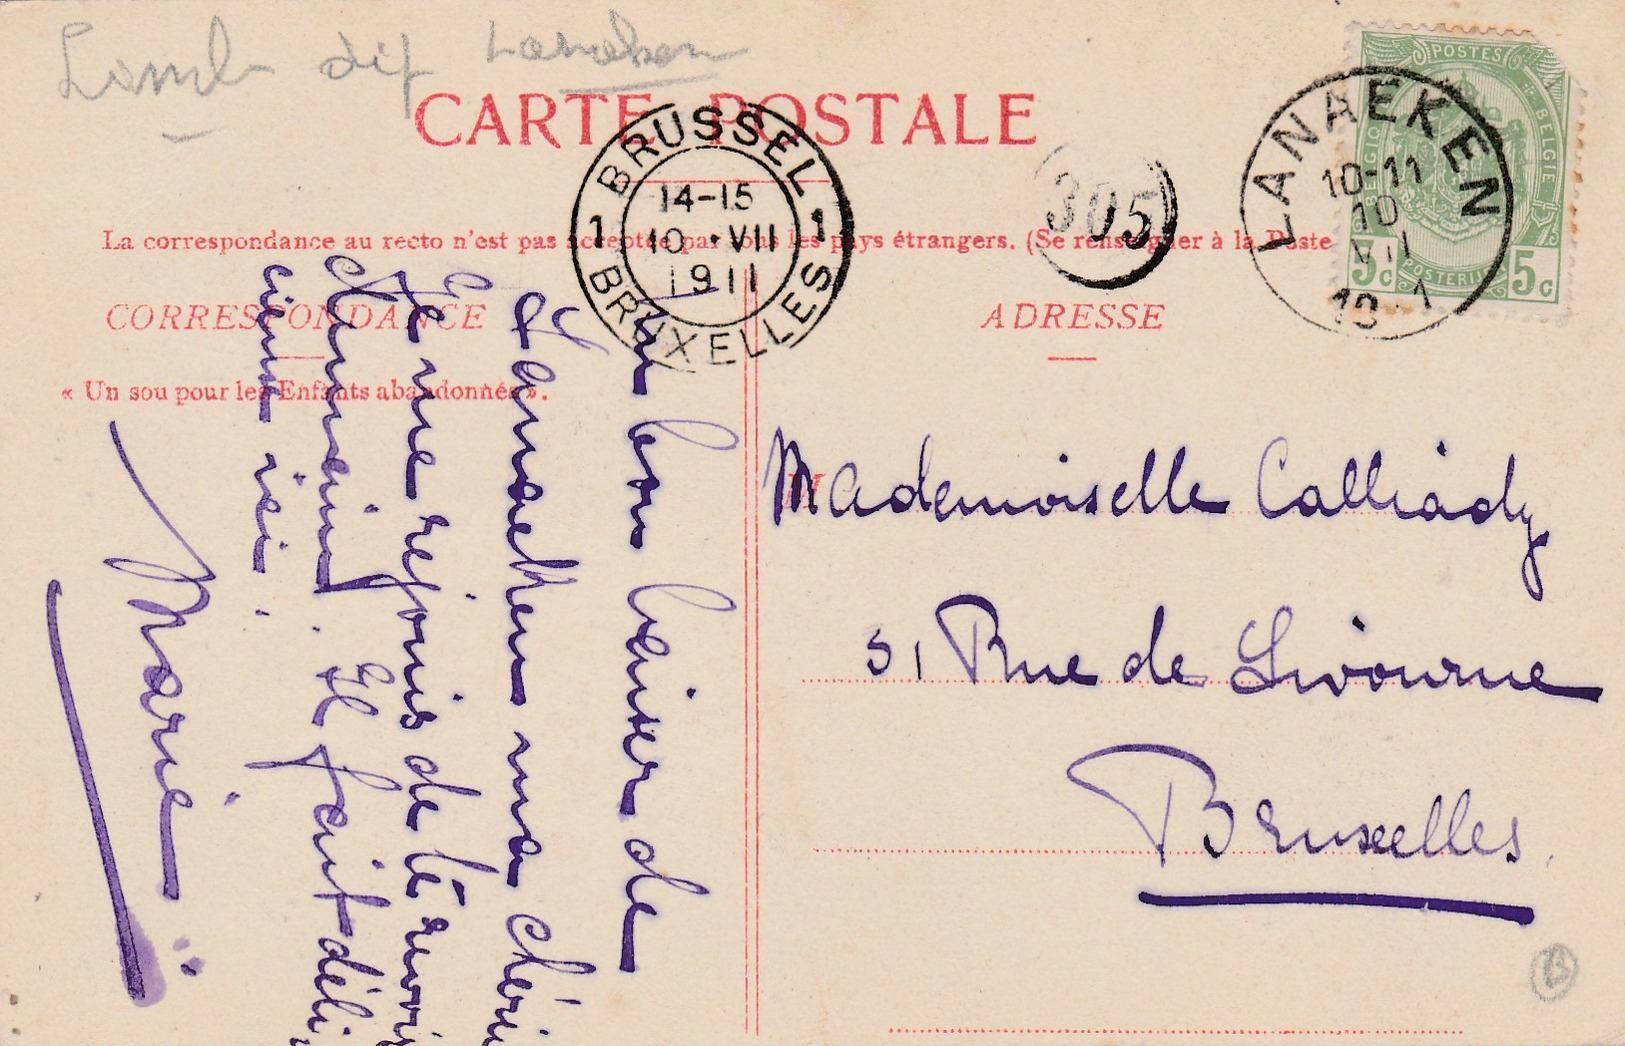 Lanaeken
CARTE POSTALE
BRUSSEL
14-15
10 · VII
1911
1 1
BRUXELLES
305
LANAEKEN
10-11
10
VII
POSTES
BELGIQUE
BELGIË
5c POSTERIJEN 5c
La correspondance au recto n'est pas acceptée par tous les pays étrangers. (Se renseigner à la Poste
CORRESPONDANCE
« Un sou pour les Enfants abandonnés ».
Un bon baiser de
Lanaeken ma chérie
Je me réjouis de te revoir
demain. Il fait déli
cieux ici.
Marie
ADRESSE
Mademoiselle Calliady
51 Rue de Livourne
Bruxelles.
B